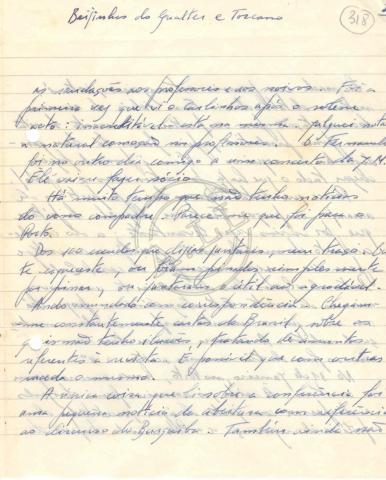 Beijinhos do Gualter e Toscano
318
às saudações aos professores e aos noivos. Foi a
primeira vez que vi o Carlinhos após o solene
acto: inacreditável está na mesma. Apliquei nota
a natural comoção no professores. O Fernando
foi no outro dia comigo a um concerto da J. M.
Ele vai-se fazer sócio.
Há muito tempo que não tenho notícias
do vosso compadre. Parece-me que foi para o
Porto.
Dos 100 contos que dizes juntares, nem traço.
te esqueceste, ou foram
por finar, ou juntares o útil ao agradável.
Ando inundado em correspondência. Chegam-
-me constantemente cartas do Brasil, sobre os
quais não tenho , tratando de assuntos
referentes à revista. É possível que com outras
suceda o mesmo.
A única coisa que li sobre a conferência foi
uma pequena notícia da abertura com referência
ao discurso do . Também ainda não